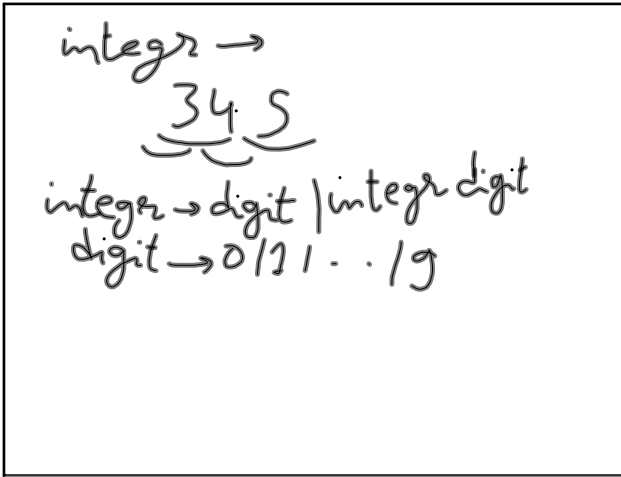 integr →
34.5
integr → digit | integr digit
digit → 0/1/ . . /9